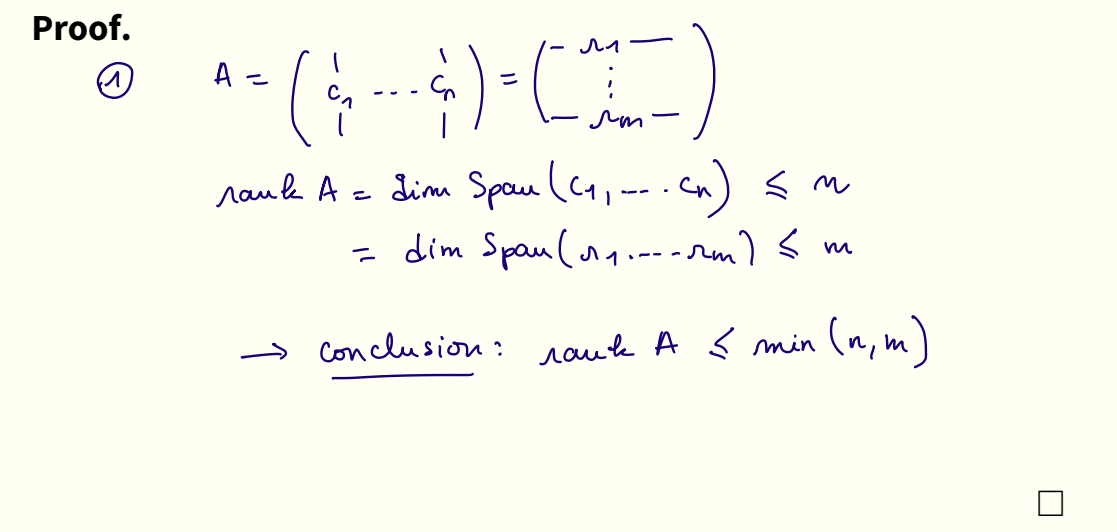 Proof.
① A = ( c₁ ... cₙ ) = ( – r₁ — ⋮ — rₘ — )
rank A = dim Span(c₁, ... cₙ) ≤ n
= dim Span(r₁ .... rₘ) ≤ m
→ conclusion: rank A ≤ min (n, m)
□